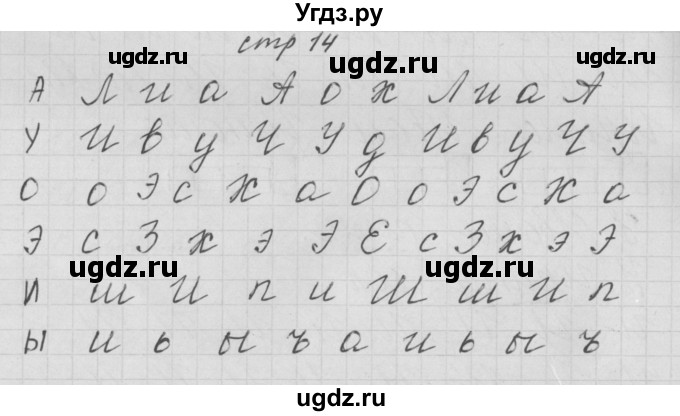 Угдз.ру
стр 14
ugdz.ru ugdz.ru ugdz.ru
А Л и а А о ж Л и а А
У И в у Ч У д И в у Ч У
ugdz.ru ugdz.ru
О о Э с Ж а О о Э с Ж а
Э с З ж э Э Е с З ж э Э
ugdz.ru ugdz.ru
И ш И п и Ш ш И п
Ы и ь ы ъ а и ь ы ъ
ugdz.ru ugdz.ru
ugdz.ru